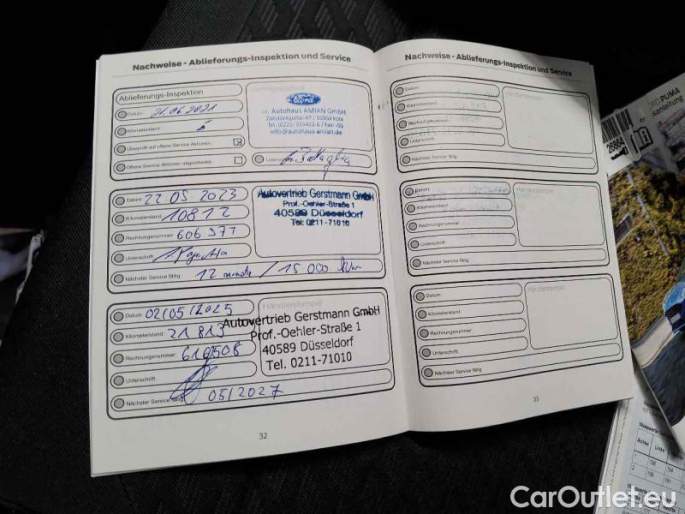 Nachweise - Ablieferungs-Inspektion und Service
Ablieferungs-Inspektion
Datum: 21.06.2021
Kilometerstand:
Überprüft auf offene Service Aktionen
Offene Service Aktionen abgearbeitet
Unterschrift
Ford
Autohaus AMIAN GmbH
Datum: 22 05 2023
Kilometerstand: 10812
Rechnungsnummer: 606 377
Unterschrift:
Nächster Service fällig: 12 monate / 15 000 km
Autovertrieb Gerstmann GmbH
Prof.-Oehler-Straße 1
40589 Düsseldorf
Tel: 0211-71010
Datum: 02/05/2025
Kilometerstand: 21 813
Rechnungsnummer: 610508
Unterschrift:
Nächster Service fällig: 05/2027
Händlerstempel
Autovertrieb Gerstmann GmbH
Prof.-Oehler-Straße 1
40589 Düsseldorf
Tel. 0211-71010
32
Nachweise - Ablieferungs-Inspektion und Service
Datum:
Kilometerstand:
Rechnungsnummer:
Unterschrift:
Nächster Service fällig:
Datum:
Kilometerstand:
Rechnungsnummer:
Unterschrift:
Nächster Service fällig:
Datum:
Kilometerstand:
Rechnungsnummer:
Unterschrift:
Nächster Service fällig:
33
PUMA
CarOutlet.eu